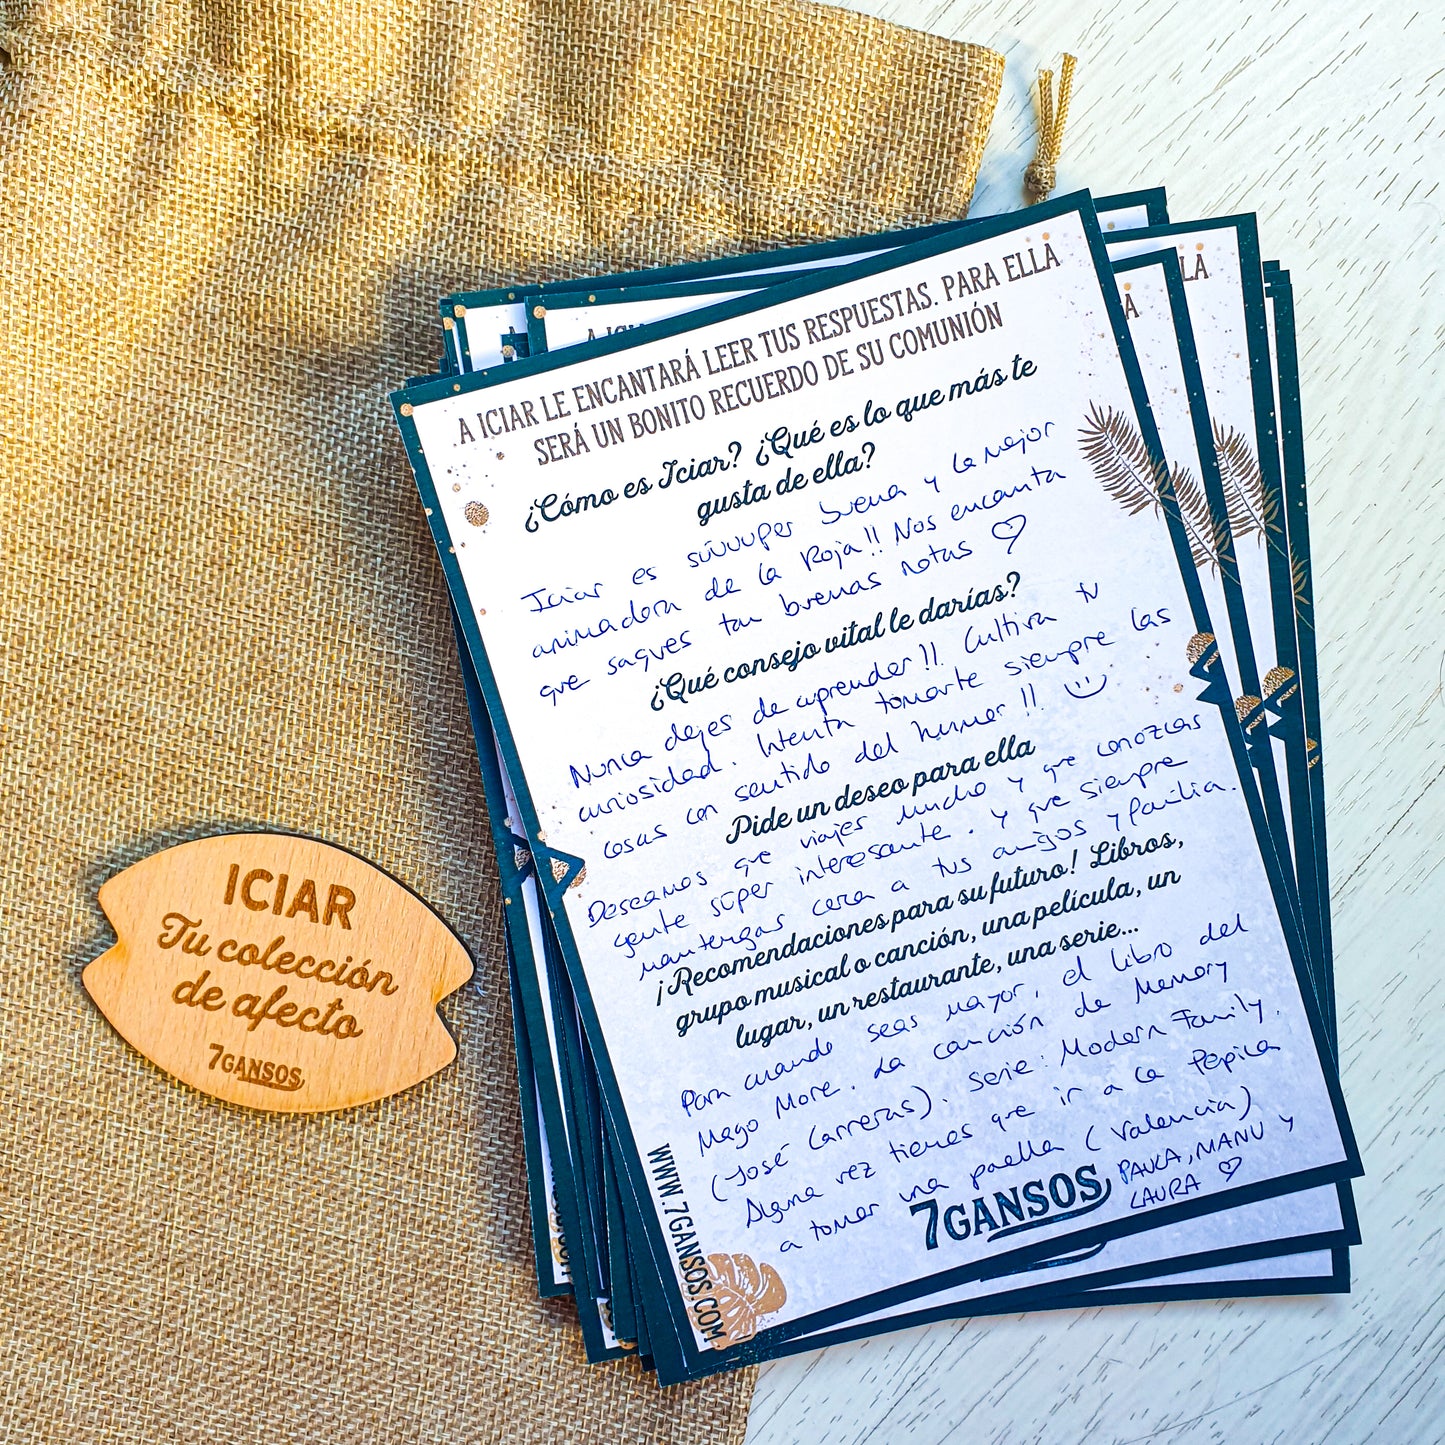 A ICIAR LE ENCANTARÁ LEER TUS RESPUESTAS. PARA ELLA
SERÁ UN BONITO RECUERDO DE SU COMUNIÓN
¿Cómo es Iciar? ¿Qué es lo que más te
gusta de ella?
Iciar es súuuuper buena y la mejor
animadora de la Roja!! Nos encanta
que saques tan buenas notas ♡
¿Qué consejo vital le darías?
Nunca dejes de aprender!! Cultiva tu
curiosidad. Intenta tomarte siempre las
cosas con sentido del humor!! :)
Pide un deseo para ella
Deseamos que viajes mucho y que conozcas
gente súper interesante. Y que siempre
mantengas cerca a tus amigos y familia.
¡Recomendaciones para su futuro! Libros,
grupo musical o canción, una película, un
lugar, un restaurante, una serie...
Para cuando seas mayor, el libro del
Mago More. La canción de Memory
(José Carreras). Serie: Modern Family.
Alguna vez tienes que ir a la Pepica
a tomar una paella (Valencia)
PAULA, MANU y
LAURA ♡
7GANSOS
WWW.7GANSOS.COM
LA
A
ICIAR
Tu colección
de afecto
7GANSOS